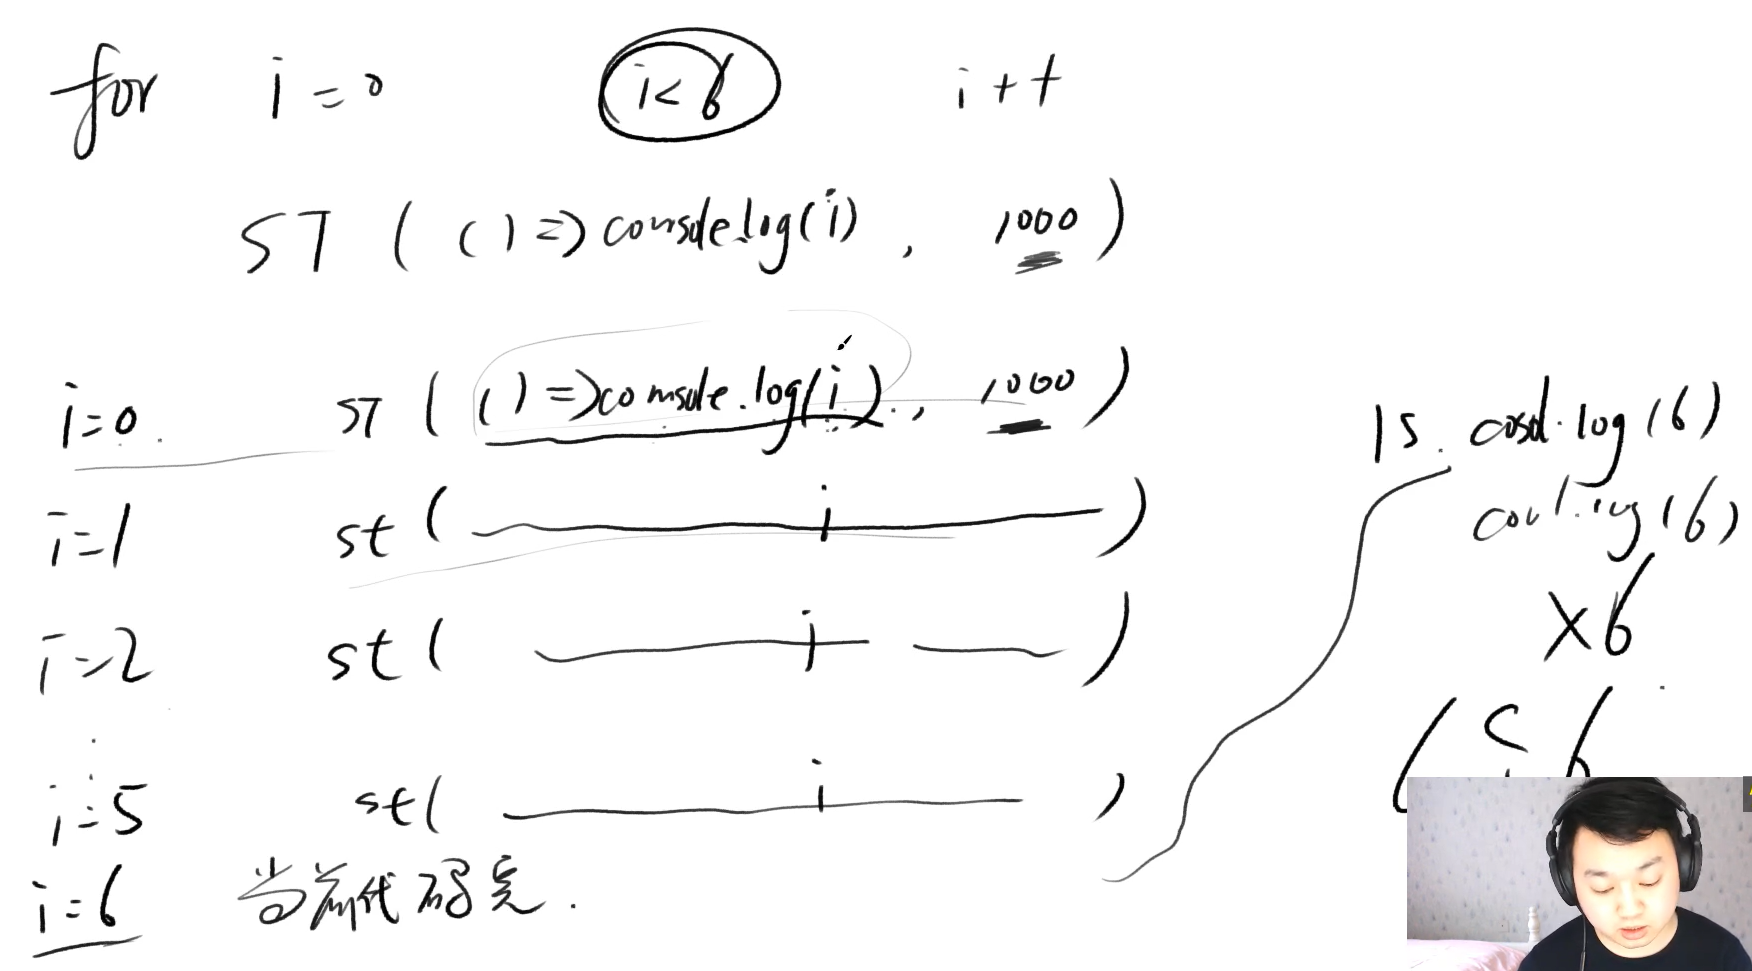 for i=0 i<6 i++
ST ( ()=>console.log(i) , 1000 )
i=0 ST ( ()=>console.log(i) , 1000 )
i=1 st ( i )
i=2 st ( i )
i=5 st ( i )
i=6 当前代码完.
1s. cosol.log(6)
×6